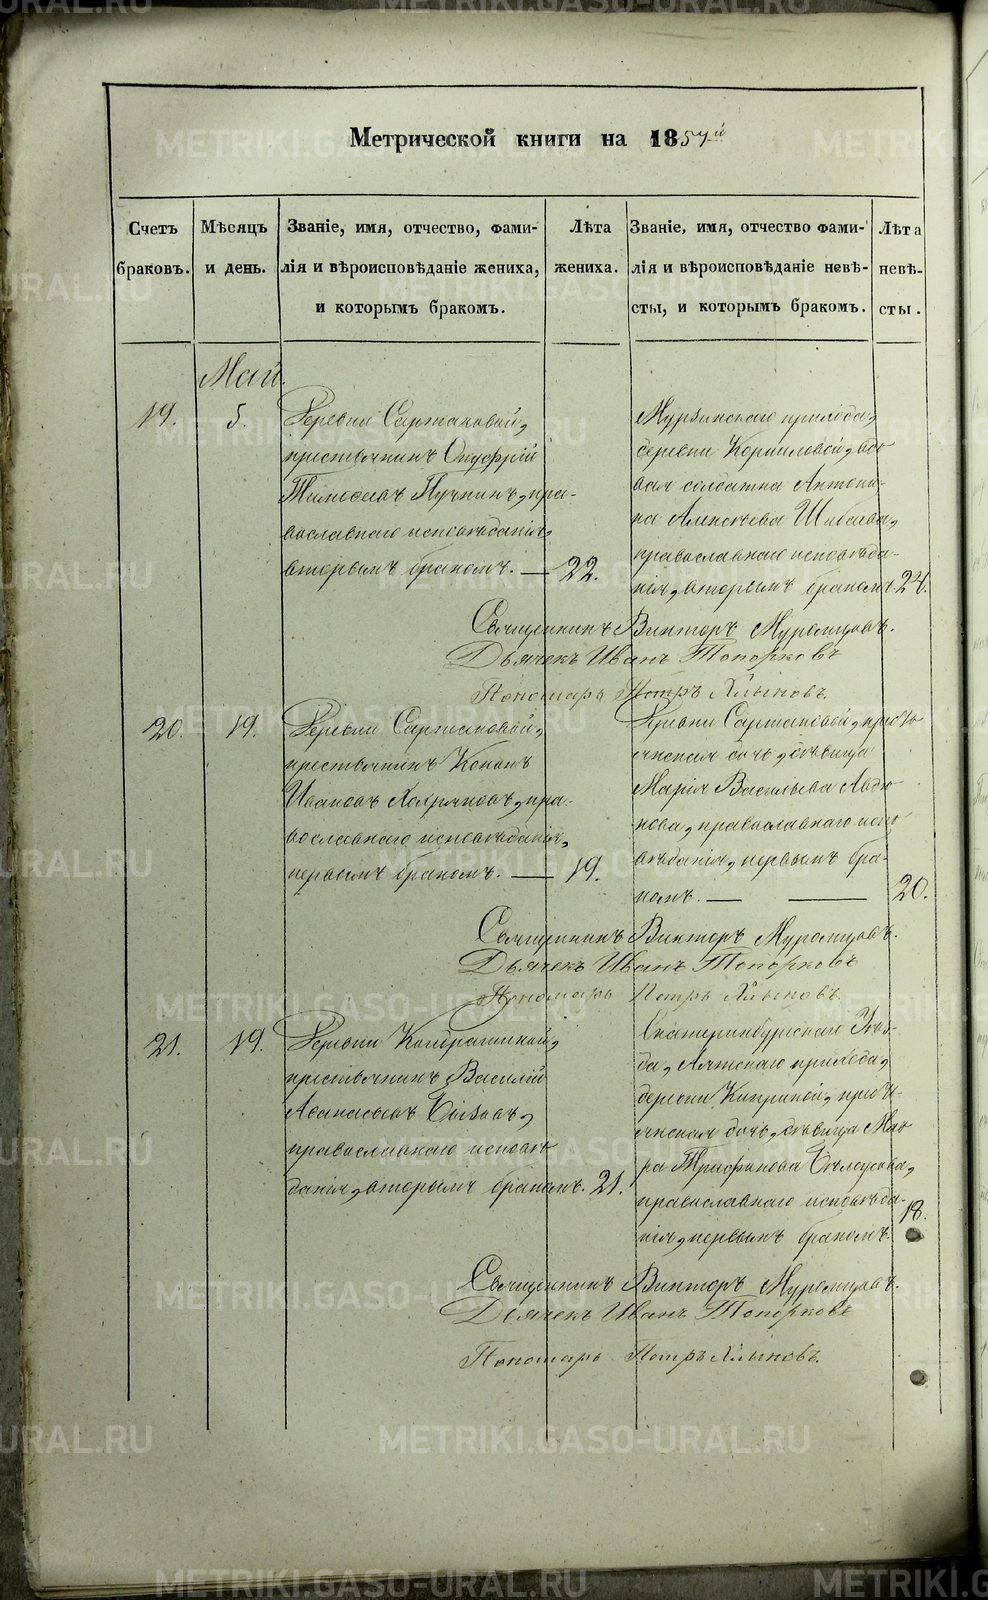 Метрической книги на 1857й
Счетъ браковъ.
Мѣсяцъ и день.
Званіе, имя, отчество, фами-
лія и вѣроисповѣданіе жениха,
и которымъ бракомъ.
Лѣта
жениха.
Званіе, имя, отчество фами-
лія и вѣроисповѣданіе невѣ-
сты, и которымъ бракомъ.
Лѣта
невѣ-
сты.
Май.
19.
5.
Деревни Сартаковой,
крестьянинъ Онуфрій
Тимофеевъ Пучкинъ, пра-
вославнаго исповѣданія,
вторымъ бракомъ. —
22.
Мурзинскаго прихода,
деревни Корниловой, вдо
вая солдатка Антони-
на Алексѣева Шибаева,
православнаго исповѣда-
нія, вторымъ бракомъ.
24.
Священникъ Викторъ Муромцовъ.
Дьячекъ Иванъ Топорковъ
Пономарь Петръ
20.
19.
Деревни Сартаковой,
крестьянинъ Кононъ
Ивановъ пра-
вославнаго исповѣданія,
первымъ бракомъ. —
19.
Деревни Сартаковой, кресть
янская дочь, дѣвица
Марія Васильева Авдю
кова, православнаго испо
вѣданія, первымъ бра-
комъ. — —
20.
Священникъ Викторъ Муромцовъ.
Дьячекъ Иванъ Топорковъ
Пономарь Петръ
21.
19.
Деревни
крестьянинъ Василій
Аѳанасьевъ
православнаго исповѣ
данія, вторымъ бракомъ.
21.
Екатеринбургскаго Уѣз-
да, Аятскаго прихода,
деревни Киприной, крестья-
янская дочь, дѣвица Мав
ра Трифонова Бѣлоусова,
православнаго исповѣда-
нія, первымъ бракомъ.
18.
Священникъ Викторъ Муромцовъ.
Дьячекъ Иванъ Топорковъ
Пономарь Петръ
METRIKI.GASO-URAL.RU